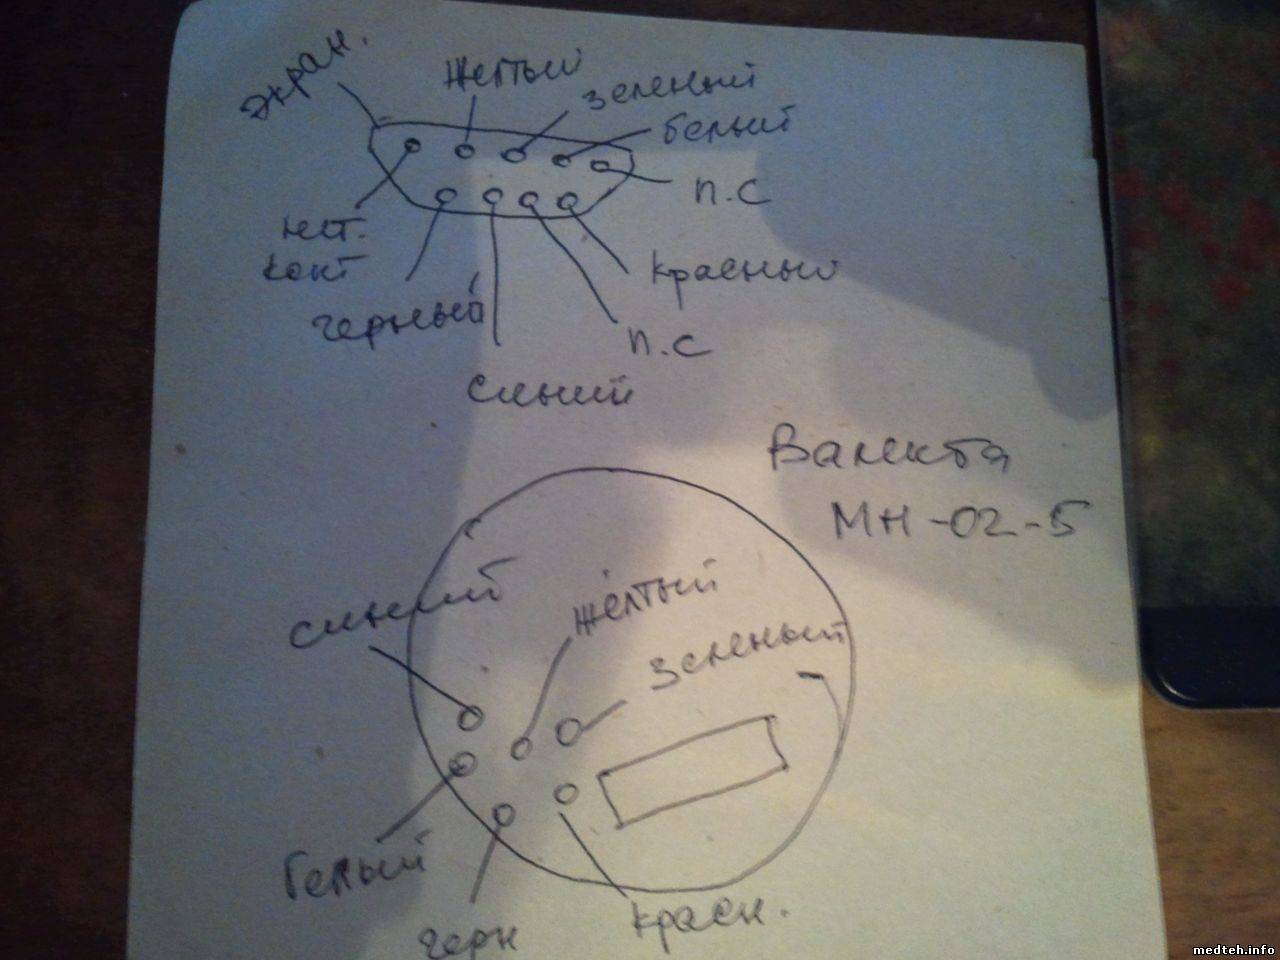 экран.
желтый
зеленый
белый
п.с
нет.
конт
черный
красный
п.с
синий
Валента
МН-02-5
синий
жёлтый
зеленый
белый
черн
красн.
medteh.info